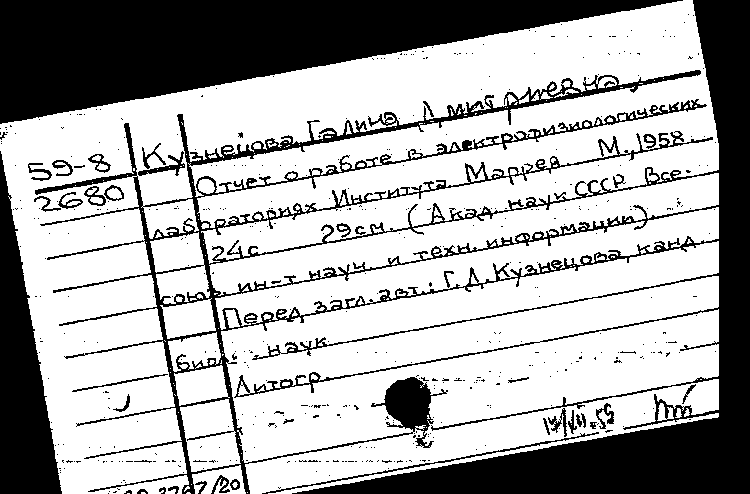 59-8
2680
Кузнецова, Галина Дмитриевна.
Отчет о работе в электрофизиологических
лабораториях Института Маррея. М., 1958.
24с 29см. (Акад. наук СССР. Все-
союз. ин-т науч. и техн. информации).
Перед загл. авт.: Г. Д. Кузнецова, канд.
биол. наук
Литогр.